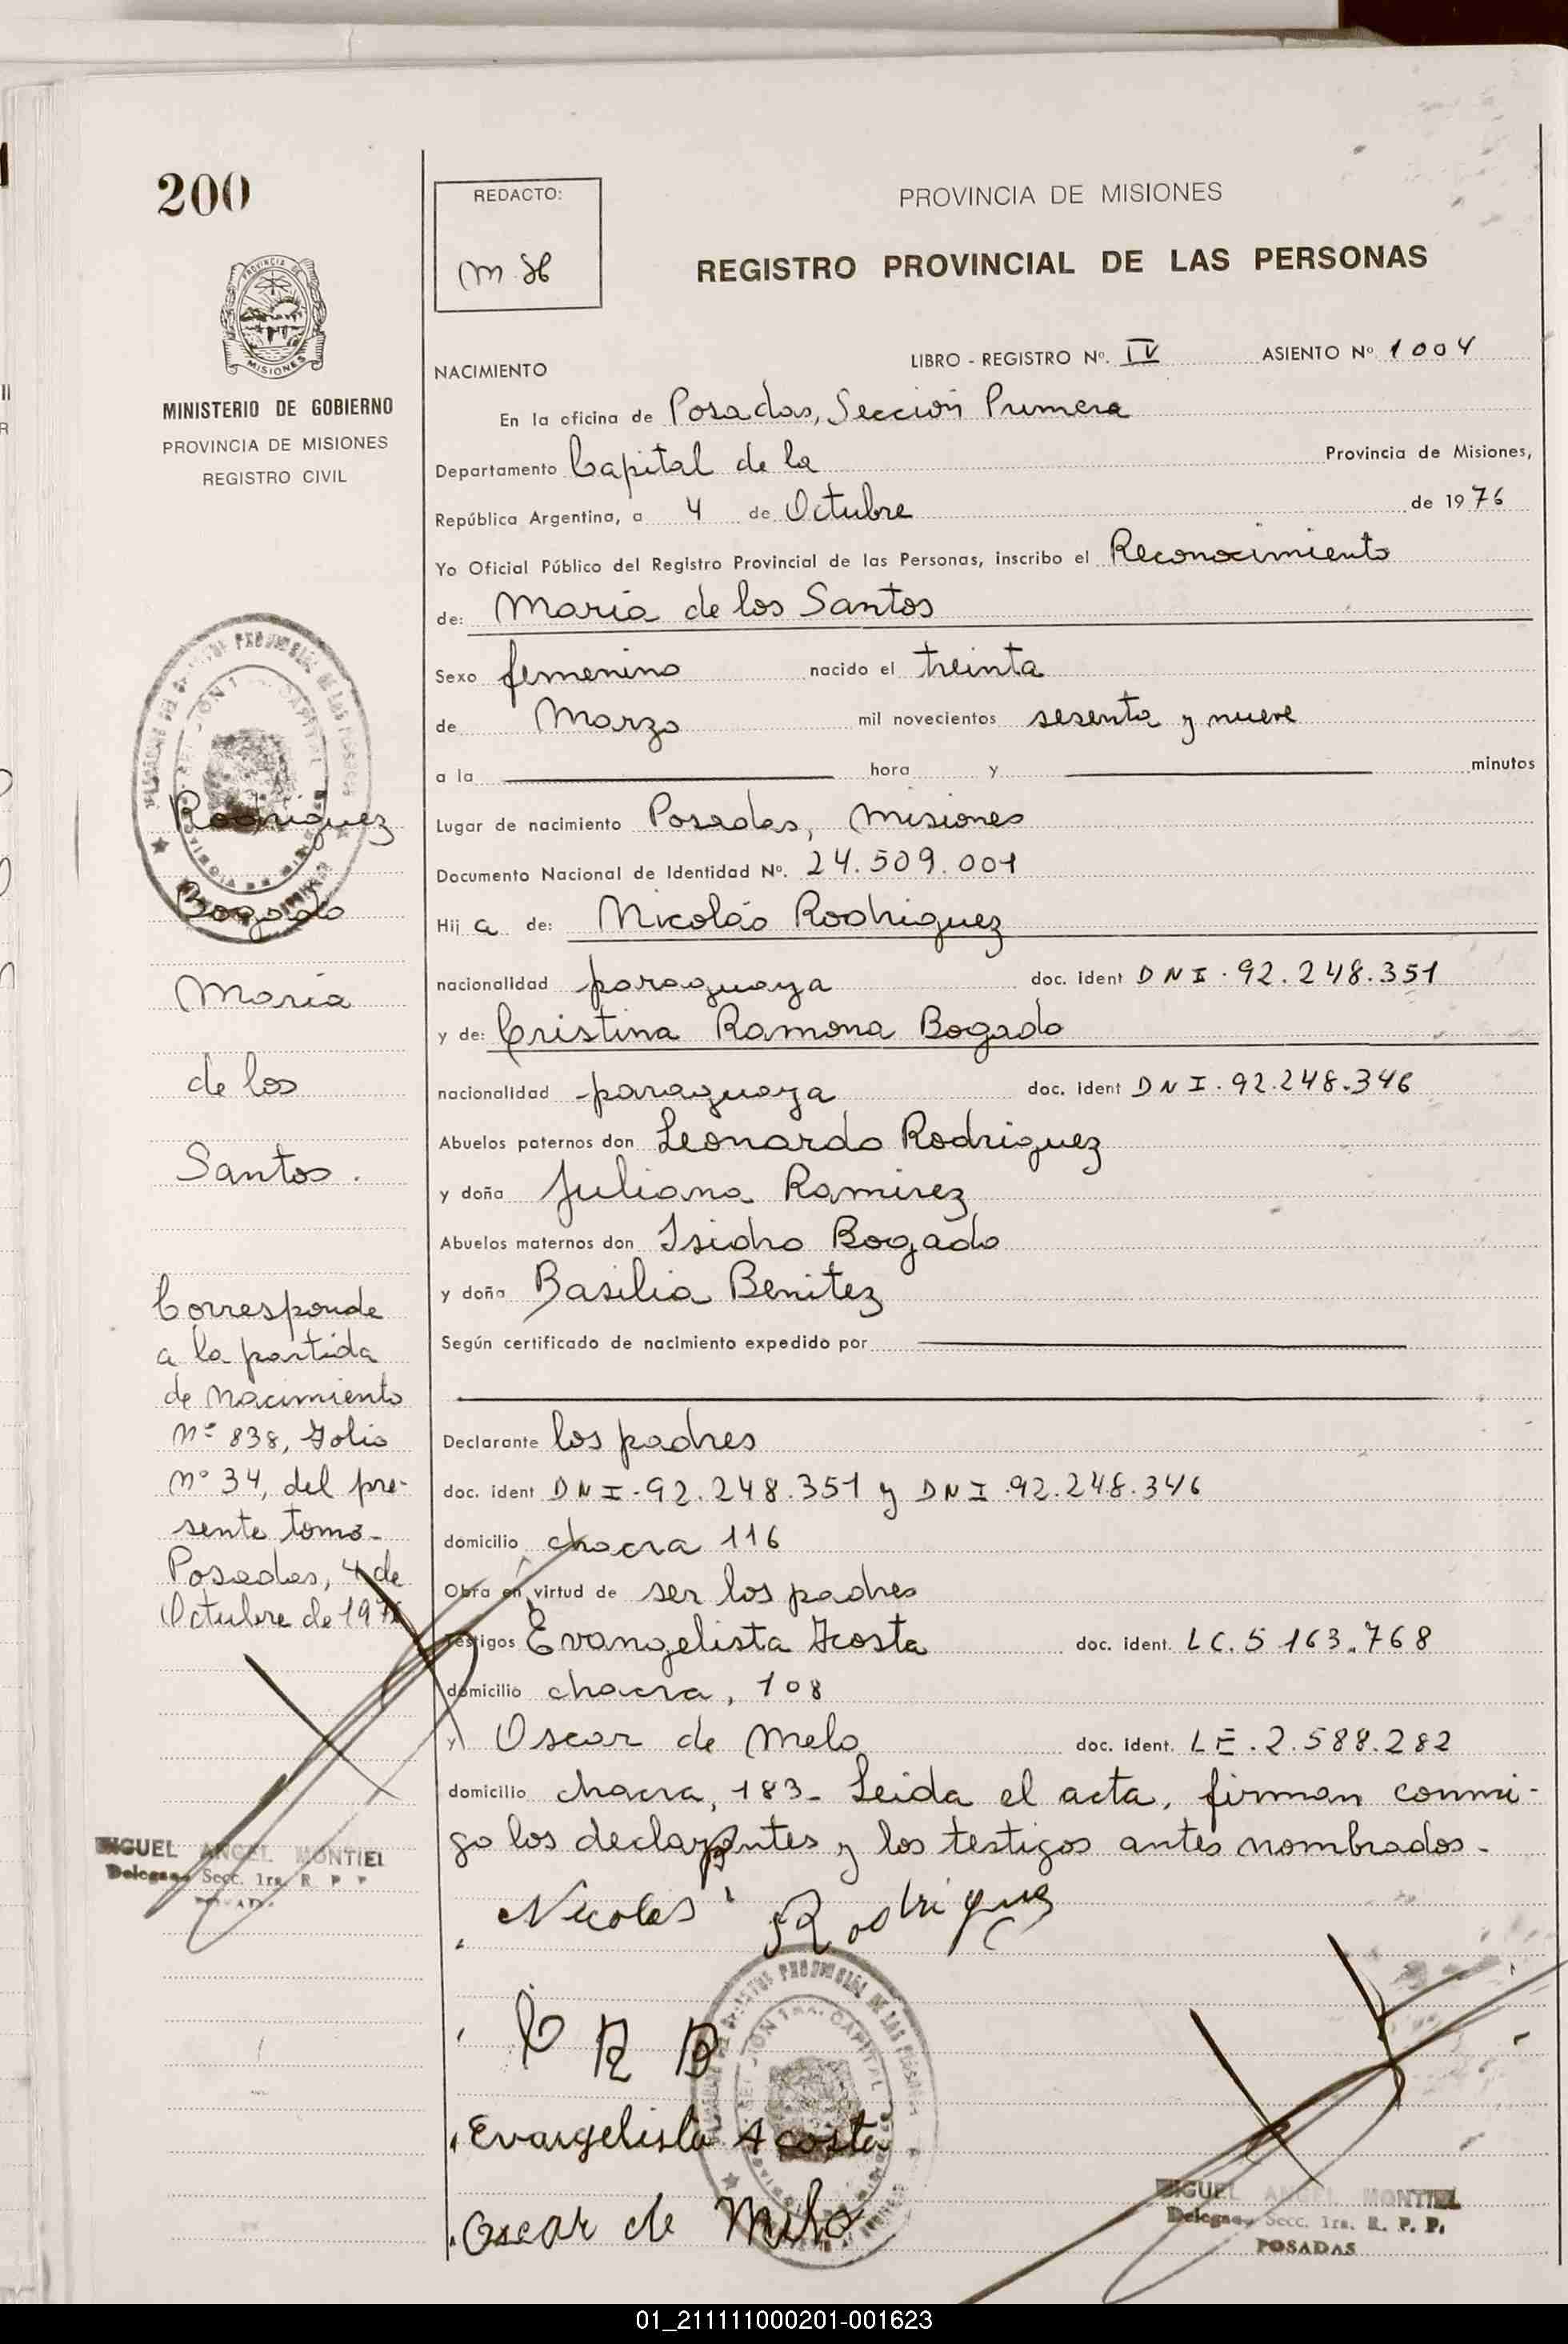 200
PROVINCIA DE
MISIONES
MINISTERIO DE GOBIERNO
PROVINCIA DE MISIONES
REGISTRO CIVIL
Rodriguez
Bogado
Maria
de los
Santos.
Corresponde
a la partida
de nacimiento
Nº 838, Folio
Nº 34, del pre-
sente tomo-
Posadas, 4 de
Octubre de 1976
MIGUEL ANGEL MONTIEL
Delegado Secc. 1ra. R. P. P.
POSADAS
REDACTO:
PROVINCIA DE MISIONES
REGISTRO PROVINCIAL DE LAS PERSONAS
NACIMIENTO LIBRO - REGISTRO Nº. IV ASIENTO Nº 1004
En la oficina de Posadas, Sección Primera
Departamento Capital de la Provincia de Misiones,
República Argentina, a 4 de Octubre de 1976
Yo Oficial Público del Registro Provincial de las Personas, inscribo el Reconocimiento
de: Maria de los Santos
Sexo femenino nacido el treinta
de Marzo mil novecientos sesenta y nueve
a la hora y minutos
Lugar de nacimiento Posadas, Misiones
Documento Nacional de Identidad Nº. 24.509.001
Hij a de: Nicolás Rodriguez
nacionalidad paraguaya doc. ident DNI. 92.248.351
y de: Cristina Ramona Bogado
nacionalidad paraguaya doc. ident DNI. 92.248.346
Abuelos paternos don Leonardo Rodriguez
y doña Juliana Ramirez
Abuelos maternos don Isidro Bogado
y doña Basilia Benitez
Según certificado de nacimiento expedido por
Declarante los padres
doc. ident DNI. 92.248.351 y DNI. 92.248.346
domicilio chacra 116
Obra en virtud de ser los padres
Testigos Evangelista Acosta doc. ident. LC. 5 163.768
domicilio chacra, 108
y Oscar de Melo doc. ident. LE. 2.588.282
domicilio chacra, 183- Leida el acta, firman conmi-
go los declarantes y los testigos antes nombrados-
Nicolas Rodriguez
C R B
Evangelista Acosta
Oscar de Melo
MIGUEL ANGEL MONTIEL
Delegado Secc. 1ra. R. P. P.
POSADAS
01_211111000201-001623